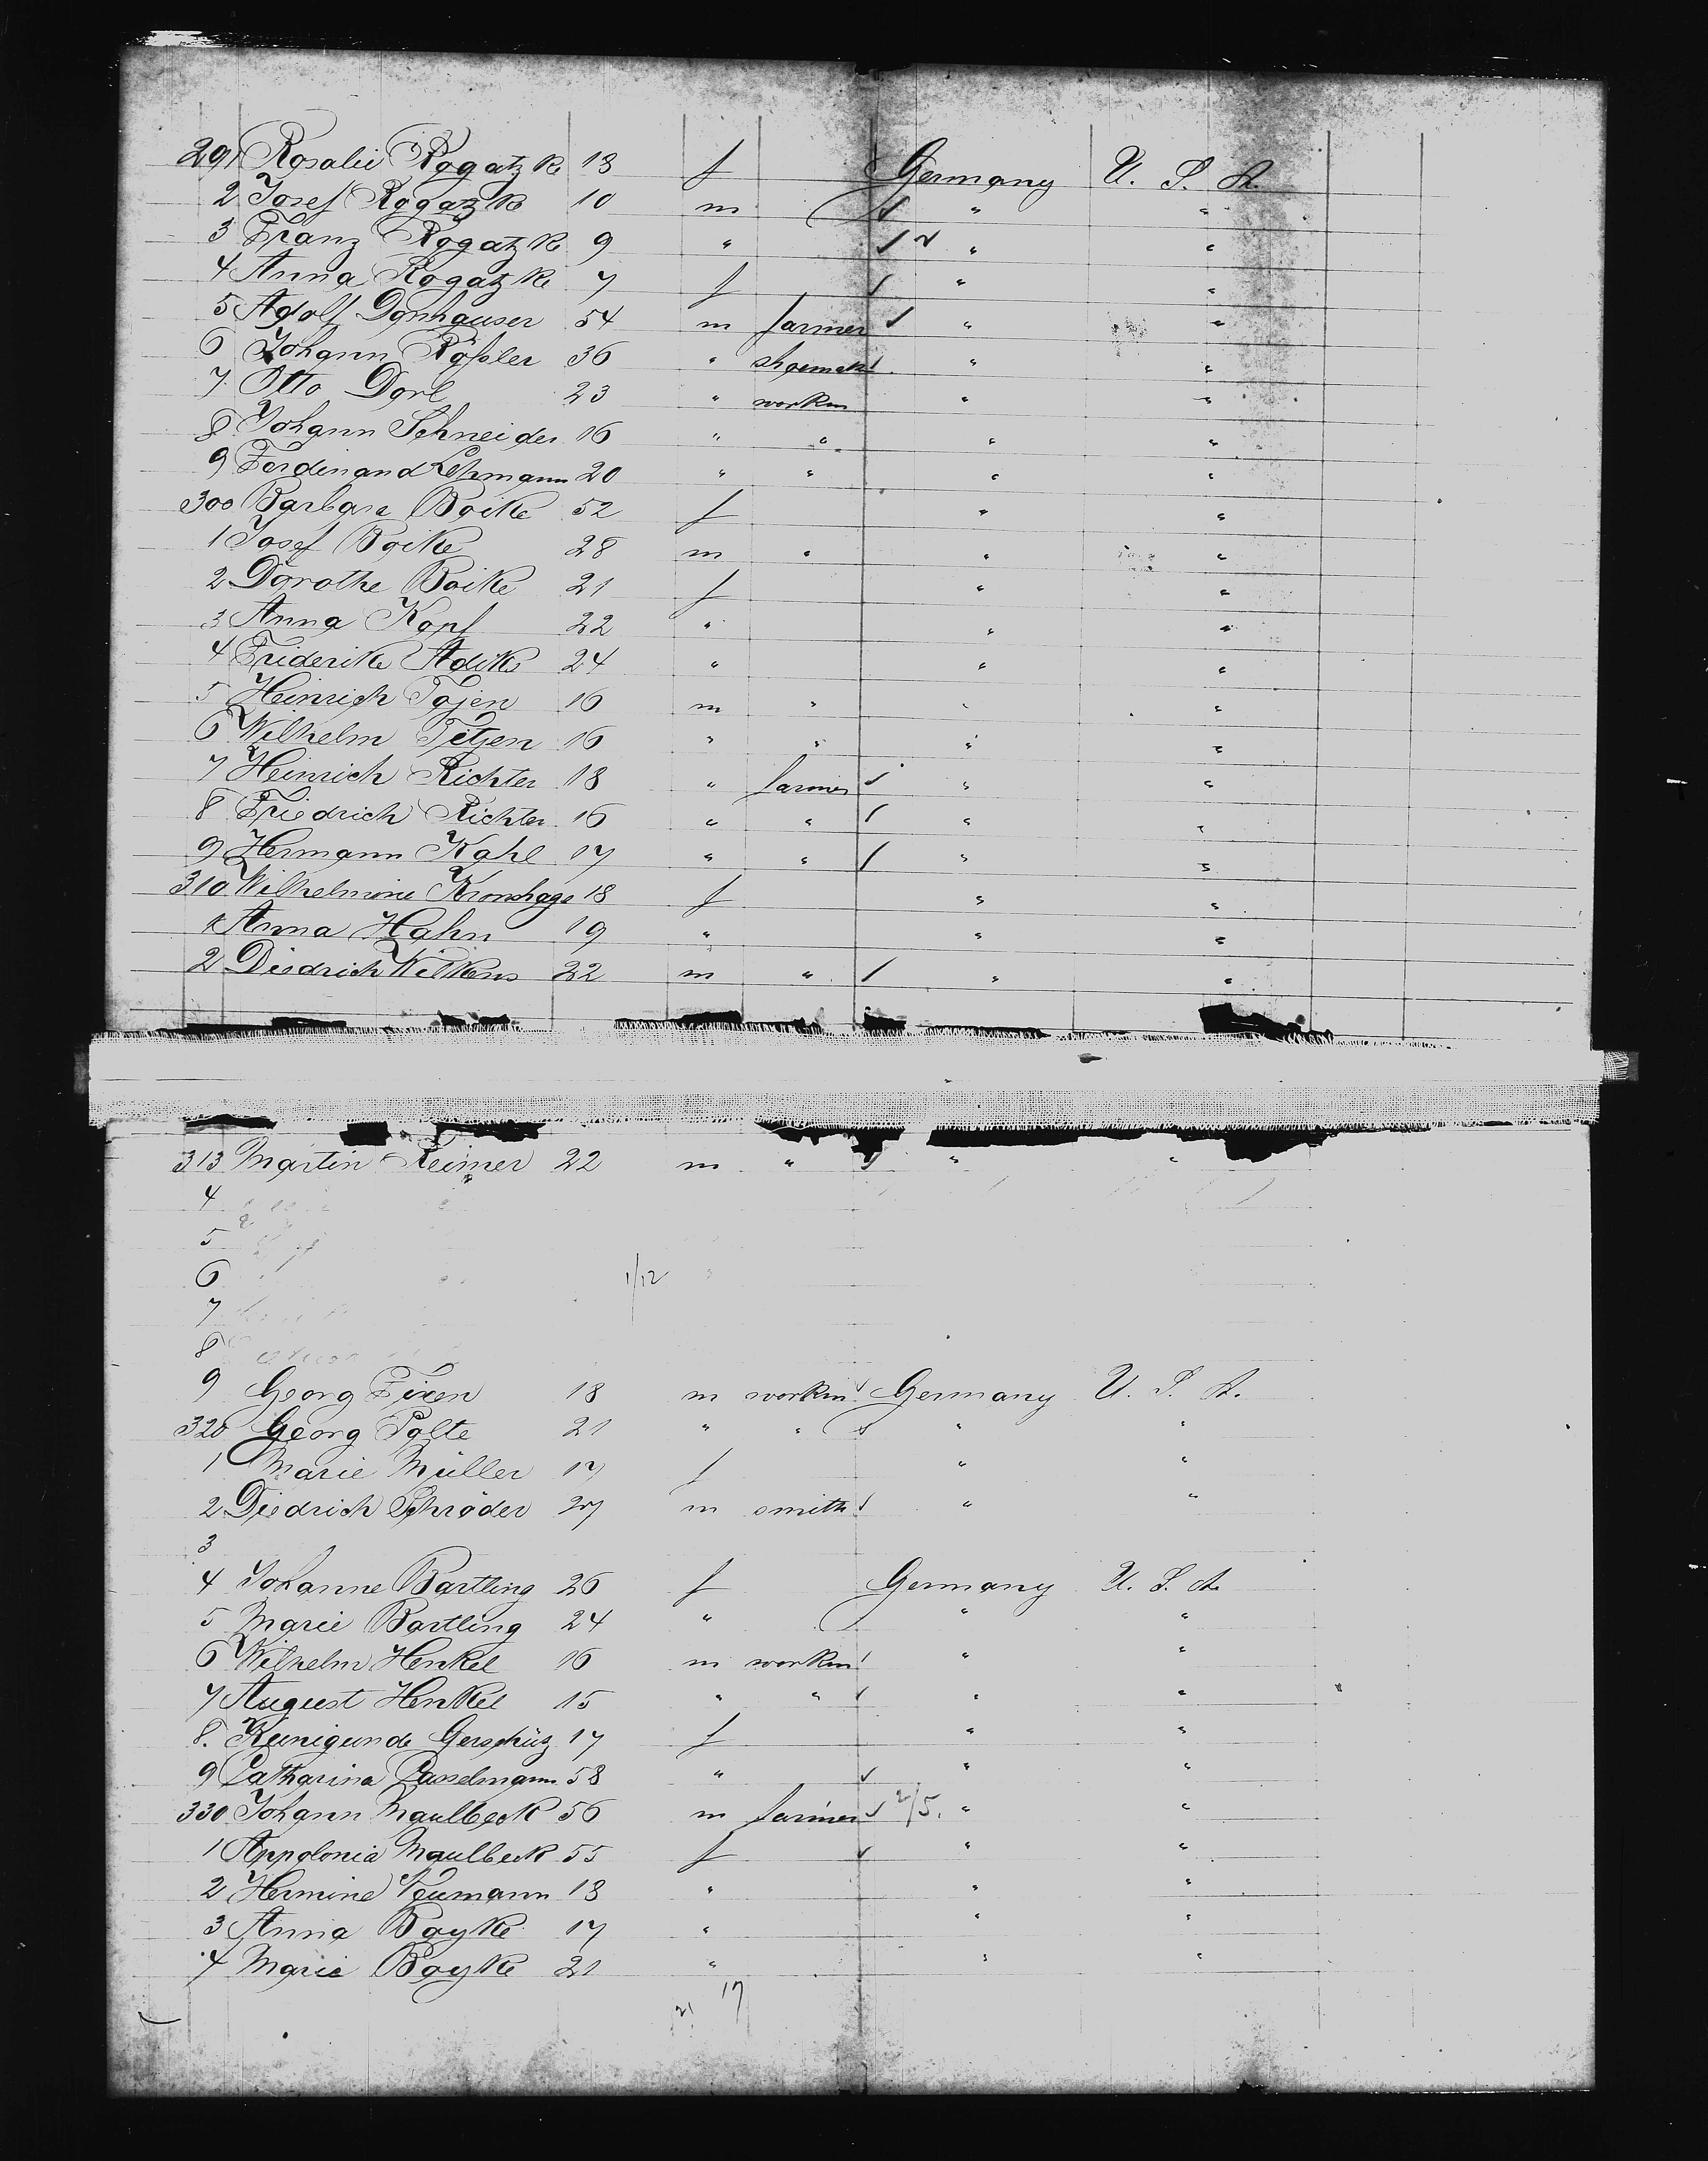 291 Rosalie Rogatzke 18 f Germany U. S. A.
2 Josef Rogatzke 10 m " "
3 Franz Rogatzke 9 " " "
4 Anna Rogatzke 7 f " "
5 Adolf Donhauser 54 m farmer " "
6 Johann Roßler 36 " shoemak " "
7 Otto Dorl 23 " workm " "
8 Johann Schneider 16 " " " "
9 Ferdinand Lehmann 20 " " " "
300 Barbara Boike 52 f " "
1 Josef Boike 28 m " " "
2 Dorothe Boike 21 f " "
3 Anna Kopf 22 " " "
4 Friderike Adike 24 " " "
5 Heinrich Tojen 16 m " " "
6 Wilhelm Tetjen 16 " " " "
7 Heinrich Richter 18 " farmer " "
8 Friedrich Richter 16 " " " "
9 Hermann Kahl 17 " " " "
310 Wilhelmine Kronshage 18 f " "
1 Anna Hahn 19 " " "
2 Diedrich Wilkens 22 m " " "
313 Martin Reimer 22 m " " "
4
5
6 1/12
7
8
9 Georg Fixen 18 m workm Germany U. S. A.
320 Georg Polte 21 " " " "
1 Marie Müller 17 f " "
2 Diedrich Schröder 27 m smith " "
3
4 Johanne Bartling 26 f Germany U. S. A.
5 Marie Bartling 24 " " "
6 Wilhelm Henkel 16 m workm " "
7 August Henkel 15 " " " "
8. Kunigunde Gerschüz 17 f " "
9 Catharina Casselmann 58 " " "
330 Johann Maulbeck 56 m farmer 2/5. " "
1 Appolonia Maulbeck 55 f " "
2 Hermine Neumann 18 " " "
3 Anna Boyke 17 " " "
4 Marie Boyke 21 " " "
21 17